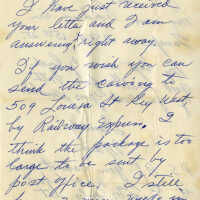 I have just received
your letter and I am
answering right away.
If you wish you can
send the carving to
509 Louisa St Key West,
by Railway Express. I
think the package is too
large to be sent by
post office. I still